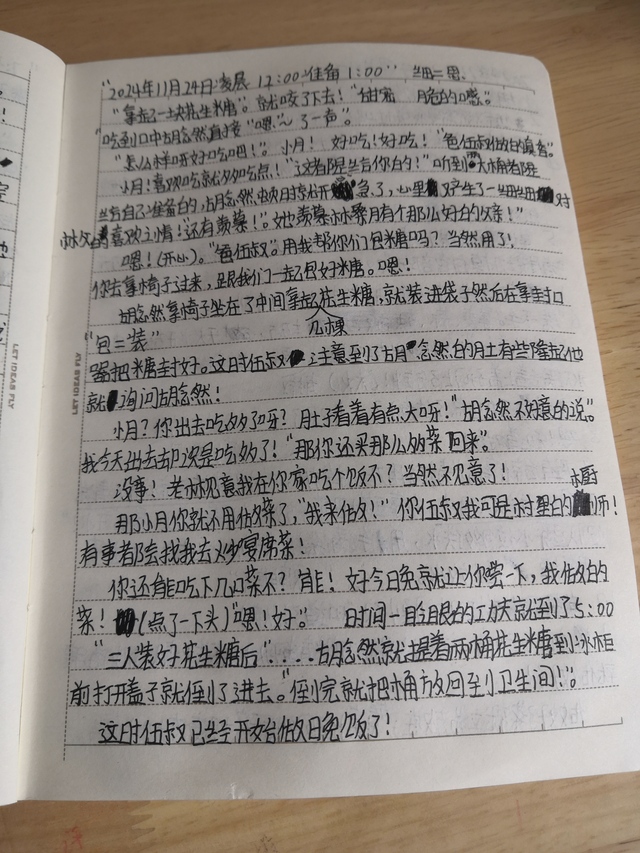 "2024年11月24日凌晨 12:00准备 1:00" 细二思.
"拿起了一块花生米糖"。就咬了下去！"甜蜜 脆的嘿"。
"吃到口中胡念然直接"嗯"~了一声"。
"怎么样呀好吃吧！"。小月！好吃！好吃！"包伍叔做的真香"。
小月！喜欢吃就多吃点！"这都是给你的！"听到 大桶都是
给自己准备的，胡念然顿时就开 急了，心里 又产生了一细细 对
林父的喜欢之情！还有羡慕！。她羡慕林 月有个那么好的父亲！"
嗯！(开心)。"包伍叔"。用我帮你们包米糖吗？当然用了！
你去拿椅子过来，跟我们一起包好米糖。嗯！
胡念然拿椅子坐在了中间拿起花生米糖，就装进袋子然后在拿封口
"包二装" 几棵
器把米糖封好。这时伍叔 注意到了胡月 念然的肚有些隆起他
就 询问胡念然！
小月？你出去吃多了呀？肚子看着有点大呀！"胡念然不好意的说"。
我今天出去却 是吃多了！"那你还买那么多菜回来"。
没事！老林见意我在你家吃个饭不？当然不见意了！
那小月你就不用做菜了，"我来做！"你伍叔我可是村里的 师！
厨
有事都会找我去炒宴席菜！
你还有能吃下几口菜不？能！好今日晚就让你尝一下，我做的
菜！ (点了一下头)"嗯！好"。 时间一眨眼的工夫就到了5:00
"三人装好花生米糖后"....胡念然就提着两桶花生米糖到冰柜
前打开盖子就倒了进去。"倒完就把桶放回到卫生间！"。
这时伍叔已经开始做晚饭了！
LET IDEAS FLY
LET IDEAS FLY